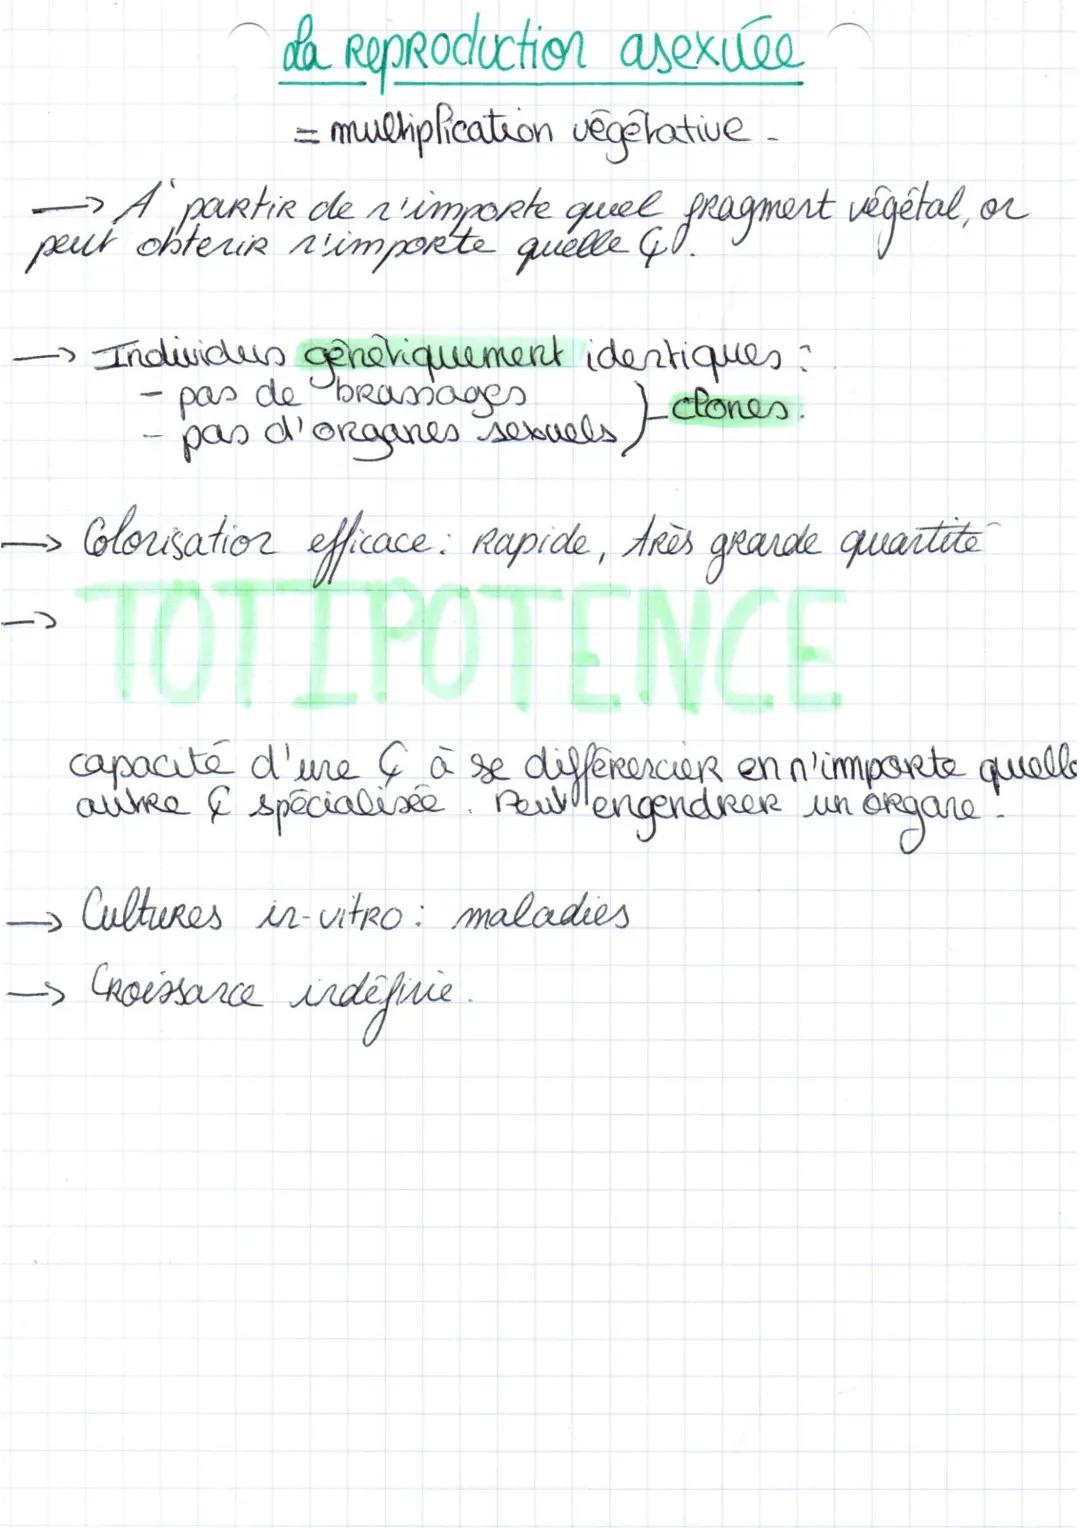 La Reproduction asexuée
= multiplication végétative.
→ À partir de n'importe quel fragment végétal, on
peut obtenir n'importe quelle ₵.
→ Individus génétiquement identiques :
- pas de brassages
- pas d'organes sexuels } clones.
→ Colonisation efficace : Rapide, très grande quantité
→ TOTIPOTENCE
capacité d'une ₵ à se différencier en n'importe quelle
autre ₵ spécialisée. Peut engendrer un organe.
→ Cultures in-vitro : maladies
→ Croissance indéfinie.